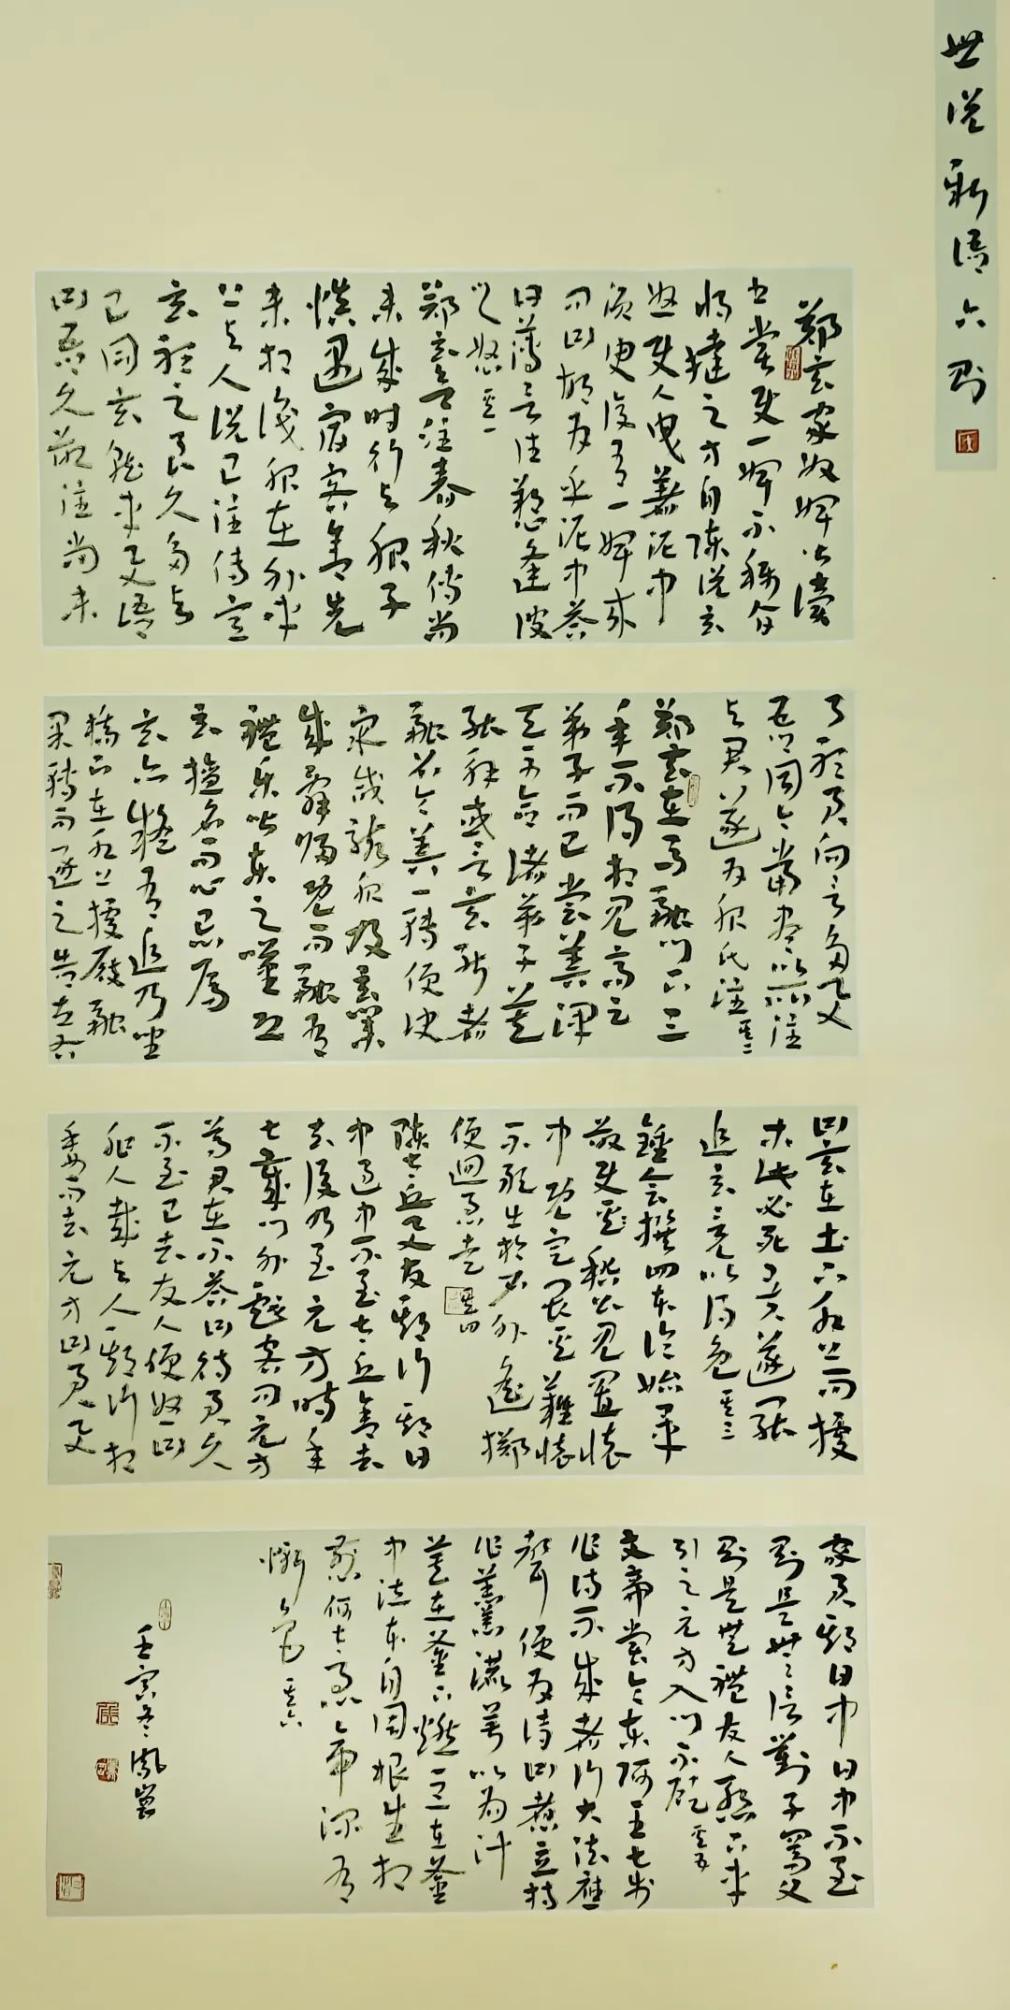 世说新语六则
郑玄家奴婢皆读
书尝使一婢不称旨
将挞之方自陈说玄
怒使人曳著泥中
须臾复有一婢来
问曰胡为乎泥中答
曰薄言往愬逢彼
之怒其一
郑玄欲注春秋传尚
未成时行与服子
慎遇宿客舍先
未相识服在外车
上与人说已注传意
玄听之良久多与
已同玄就车与语
曰吾久欲注尚未
了听君向言多与吾
同今当尽以所注
与君遂为服氏注其二
郑玄在马融门下三
年不得相见高足
弟子而已尝算浑
天不合诸弟子莫
能解或言玄能者
融召令算一转便决
众咸骇服及玄业
成辞归既而融有
礼乐皆东之叹恐
玄擅名而心忌焉
玄亦疑有追乃坐
桥下在水上据屐融
果转式逐之告左右
曰玄在土下水上而据
木此必死矣遂罢
追玄竟以得免其三
钟会撰四本论始毕
甚欲使嵇公一见置怀
中既定畏其难怀
不敢出于户外遥掷
便回急走其四
陈太丘与友期行期日
中过中不至太丘舍去
去后乃至元方时年
七岁门外戏客问元方
尊君在不答曰待君久
不至已去友人便怒曰
非人哉与人期行相
委而去元方曰君与
家君期日中日中不至
则是无信对子骂父
则是无礼友人惭下车
引之元方入门不顾其五
文帝尝令东阿王七步
作诗不成者行大法应
声便为诗曰煮豆持
作羹漉菽以为汁
萁在釜下燃豆在釜
中泣本自同根生相
煎何太急帝深有
惭色其六
壬寅冬